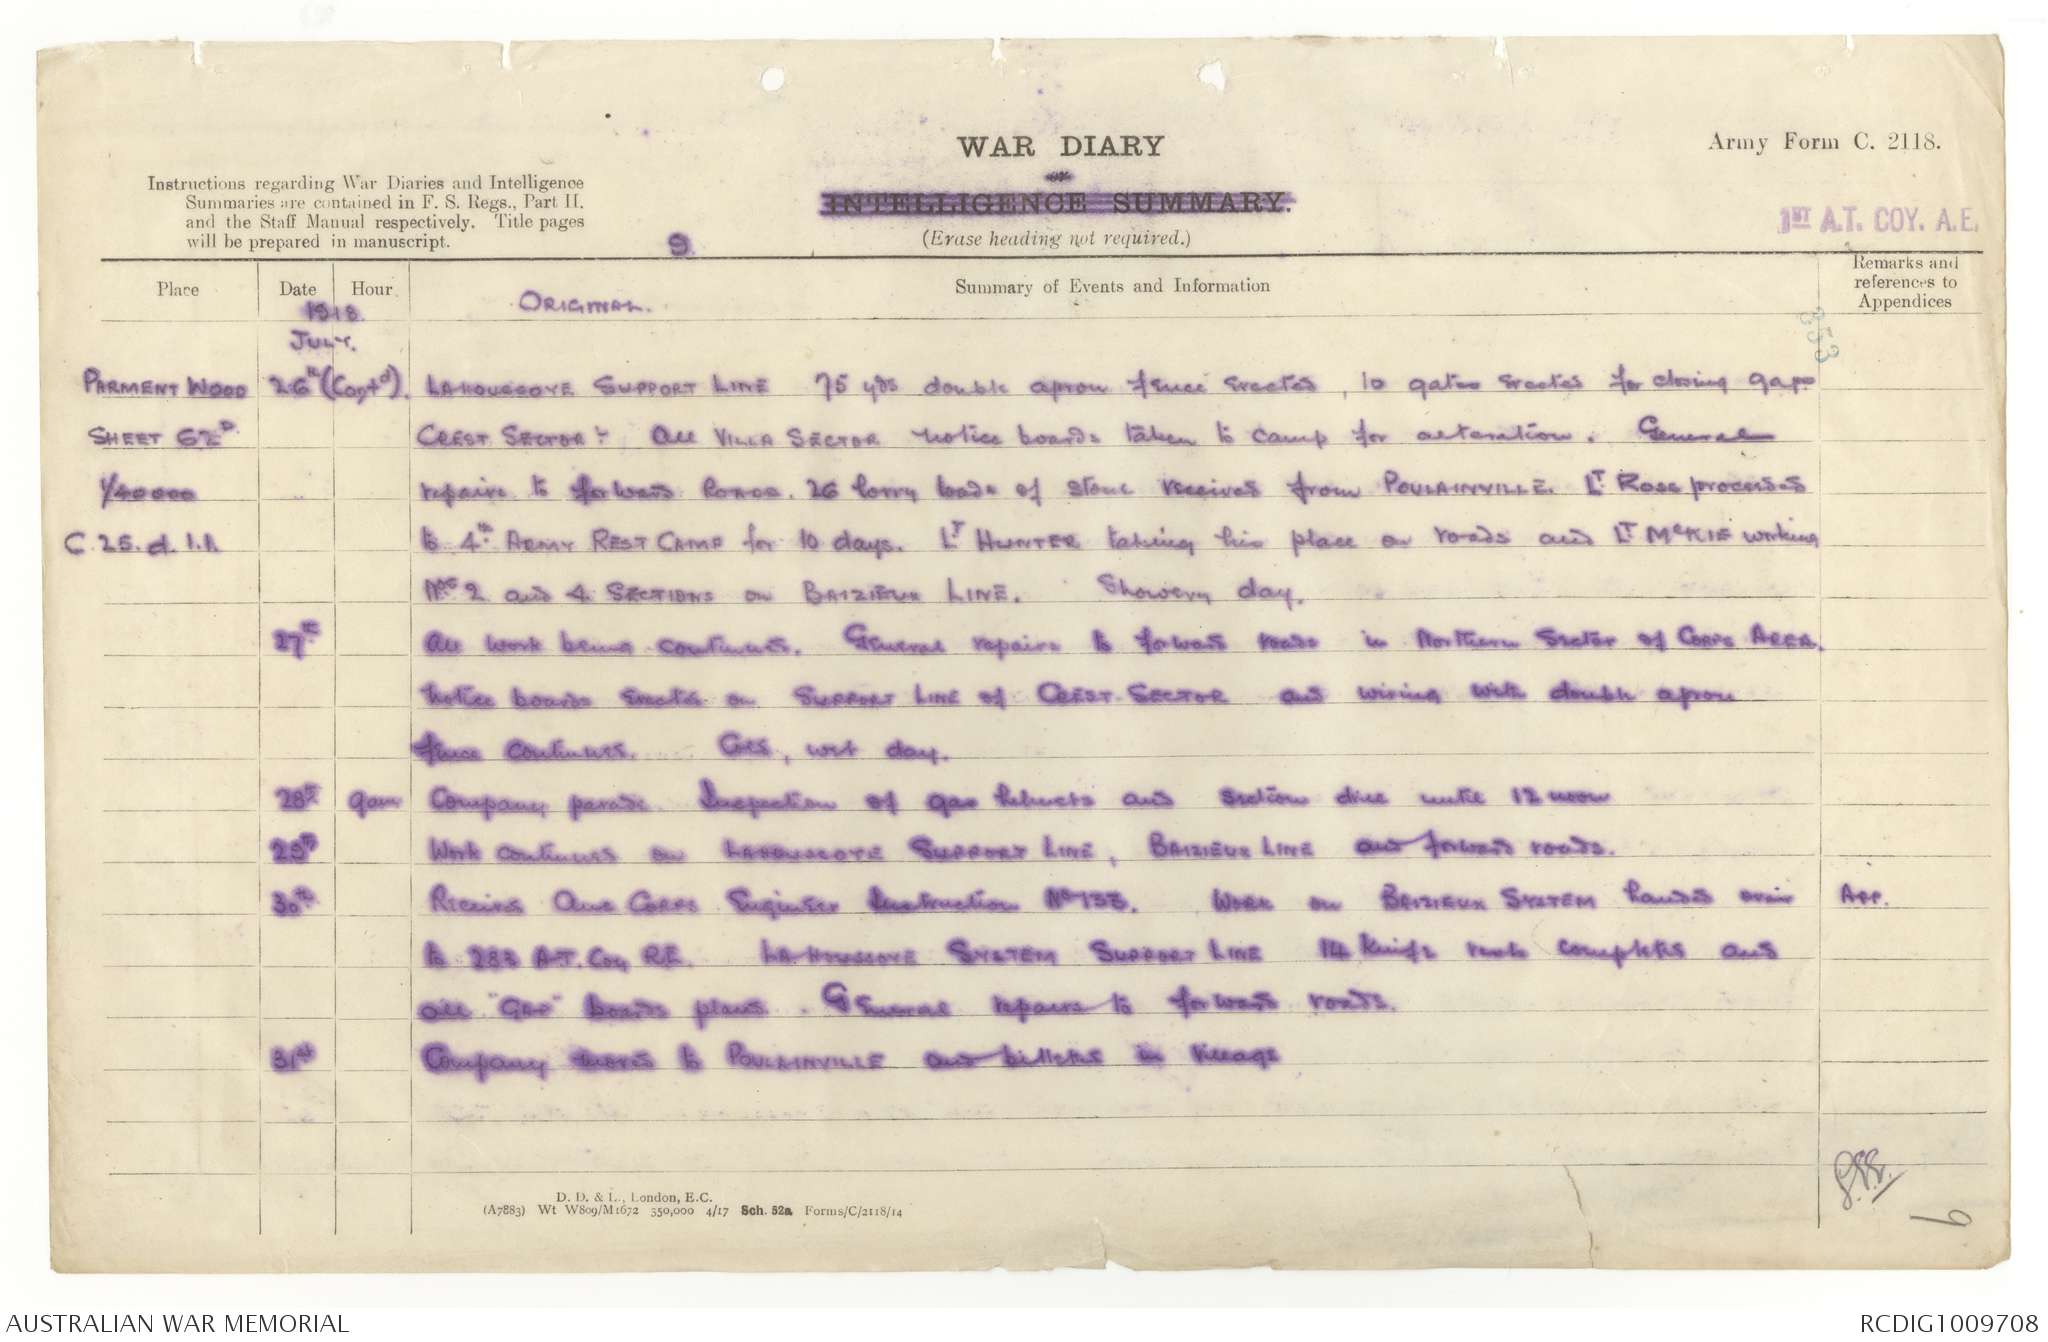 WAR DIARY
or
INTELLIGENCE SUMMARY.
(Erase heading not required.)
Army Form C. 2118.
Instructions regarding War Diaries and Intelligence
Summaries are contained in F. S. Regs., Part II.
and the Staff Manual respectively. Title pages
will be prepared in manuscript.
9.
1ST A.T. COY. A.E.
Place Date Hour Summary of Events and Information Remarks and references to Appendices
1918. ORIGINAL.
JULY.
353
PARMENT WOOD 26th (Contd). LAHOUSSOYE SUPPORT LINE 75 yds double apron fence erected, 10 gates erected for closing gaps
SHEET 62D. CREST SECTOR: All VILLA SECTOR notice boards taken to camp for alteration. General
1/40000 repairs to forward Roads. 26 lorry loads of stone received from POULAINVILLE. LT Rose proceeded
C.25.d.1.1. to 4th ARMY REST CAMP for 10 days. LT HUNTER taking his place on roads and LT McKIE working
Nos 2 and 4 SECTIONS on BAIZIEUX LINE. Showery day.
27th All work being continued. General repairs to forward roads in Northern Sector of CORPS AREA.
Notice boards erected on SUPPORT LINE of CREST SECTOR and wiring with double apron
fence continued. Cold, wet day.
28th 9am Company parade. Inspection of gas helmets and section drill until 12 noon
29th Work continued on LAHOUSSOYE SUPPORT LINE, BAIZIEUX LINE and forward roads.
30th Received Aus CORPS Engineer Instruction No 133. WORK on BAIZIEUX SYSTEM handed over App.
to 283 A.T. Coy R.E. LAHOUSSOYE SYSTEM SUPPORT LINE 14 Knife rests completed and
all "GAP" boards placed. General repairs to forward roads.
31st Company moved to POULAINVILLE and billeted in village
D. D. & L., London, E.C.
(A7883) Wt W809/M1672 350,000 4/17 Sch. 52a Forms/C/2118/14
9
AUSTRALIAN WAR MEMORIAL
RCDIG1009708